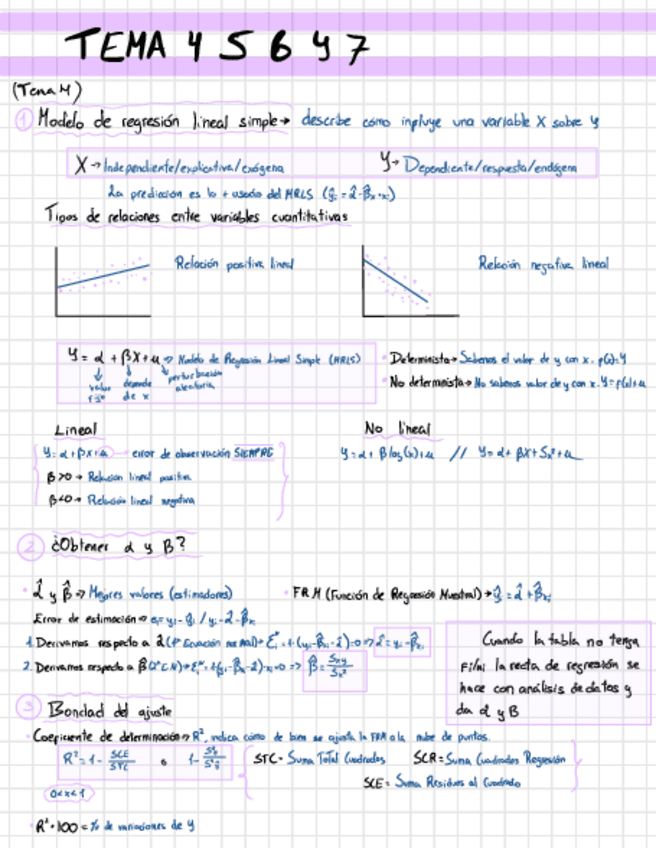 TEMA 4 5 6 y 7
(Tema 4)
① Modelo de regresión lineal simple → describe cómo influye una variable X sobre y
X → Independiente/explicativa/exógena y → Dependiente/respuesta/endógena
La predicción es lo + usado del MRLS
Tipos de relaciones entre variables cuantitativas
Relación positiva lineal Relación negativa lineal
y = α + βx + u → Modelo de Regresión Lineal Simple (MRLS)
valor fijo depende de x perturbación aleatoria
• Determinista → Sabemos el valor de y con x. f(x)=y
• No determinista → No sabemos valor de y con x. y=f(x)+u
Lineal No lineal
y = α + βx + u → error de observación SIEMPRE
y = α + β log(x) + u // y = α + βx + δx² + u
β > 0 → Relación lineal positiva
β < 0 → Relación lineal negativa
② ¿Obtener α y β?
• α̂ y β̂ → Mejores valores (estimadores)
• FRM (Función de Regresión Muestral) → ŷᵢ = α̂ + β̂xᵢ
Error de estimación
1. Derivamos respecto a α̂
2. Derivamos respecto a β̂
β̂ = Sxy / Sx²
Cuando la tabla no tenga
Fi/ni la recta de regresión se
hace con análisis de datos y
da α y β
③ Bondad del ajuste
• Coeficiente de determinación → R², indica cómo de bien se ajusta la FRM a la nube de puntos.
R² = 1 - SCE / STC o
STC = Suma Total Cuadrados SCR = Suma Cuadrados Regresión
SCE = Suma Residuos al Cuadrado
R² · 100 = % de variaciones de y